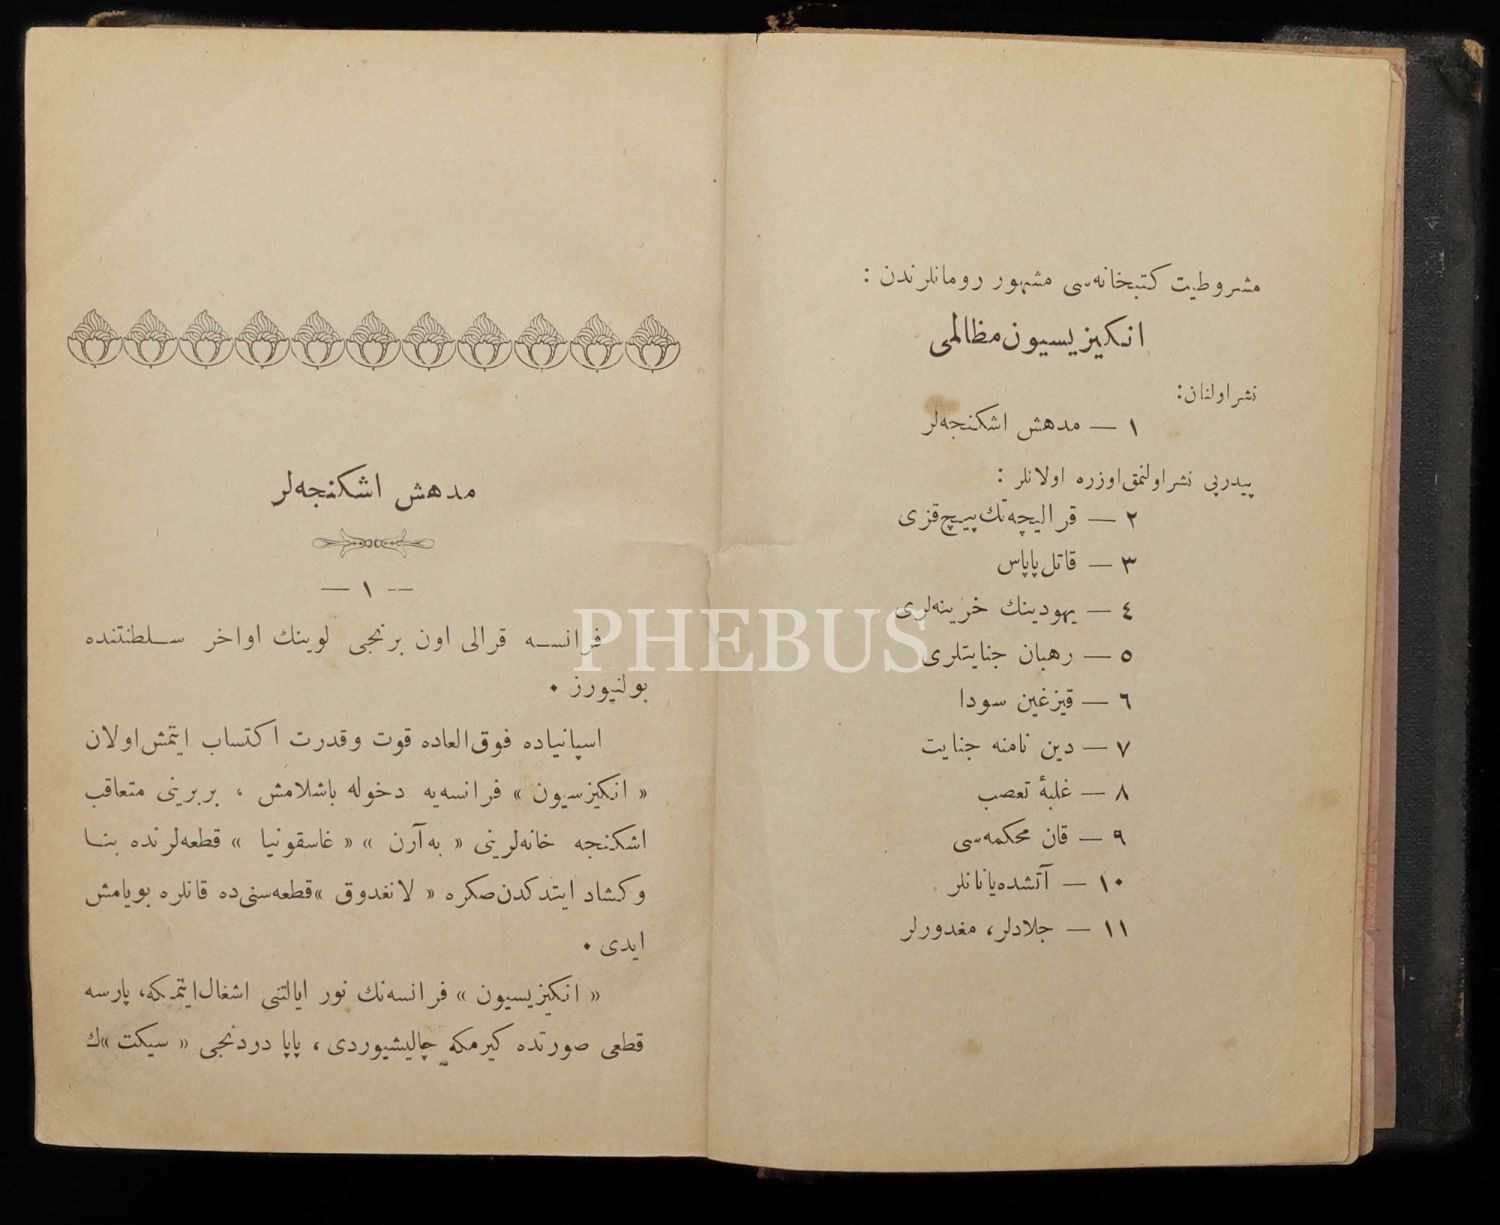 مشروطيت كتبخانه‌سى مشهور رومانلرندن :
انكيزيسيون مظالمى
نشر اولنان :
١ — مدهش اشكنجه‌لر
پيدرپى نشر اولنمق اوزره اولانلر :
٢ — قراليچه‌نك پيچ قزى
٣ — قاتل پاپاس
٤ — يهودينك خزينه‌لرى
٥ — رهبان جنايتلرى
٦ — قيزغين سودا
٧ — دين نامنه جنايت
٨ — غلبۀ تعصب
٩ — قان محكمه‌سى
١٠ — آتشده يانانلر
١١ — جلادلر، مغدورلر
مدهش اشكنجه‌لر
— ١ —
فرانسه قرالى اون برنجى لوينك اواخر سلطنتنده
بولنيورز .
اسپانياده فوق العاده قوت و قدرت اكتساب ايتمش اولان
« انكيزسيون » فرانسه‌يه دخوله باشلامش ، بربرينى متعاقب
اشكنجه خانه‌لرينى « به‌آرن » « غاسقونيا » قطعه‌لرنده بنا
و كشاد ايتدكدن صكره « لانغدوق » قطعه‌سنى ده قانلره بويامش
ايدى .
« انكيزيسيون » فرانسه‌نك نور ايالتنى اشغال ايتمكه، پارسه
قطعى صورتده كيرمكه چاليشيوردى ، پاپا دردنجى « سيكت »ك
PHEBUS